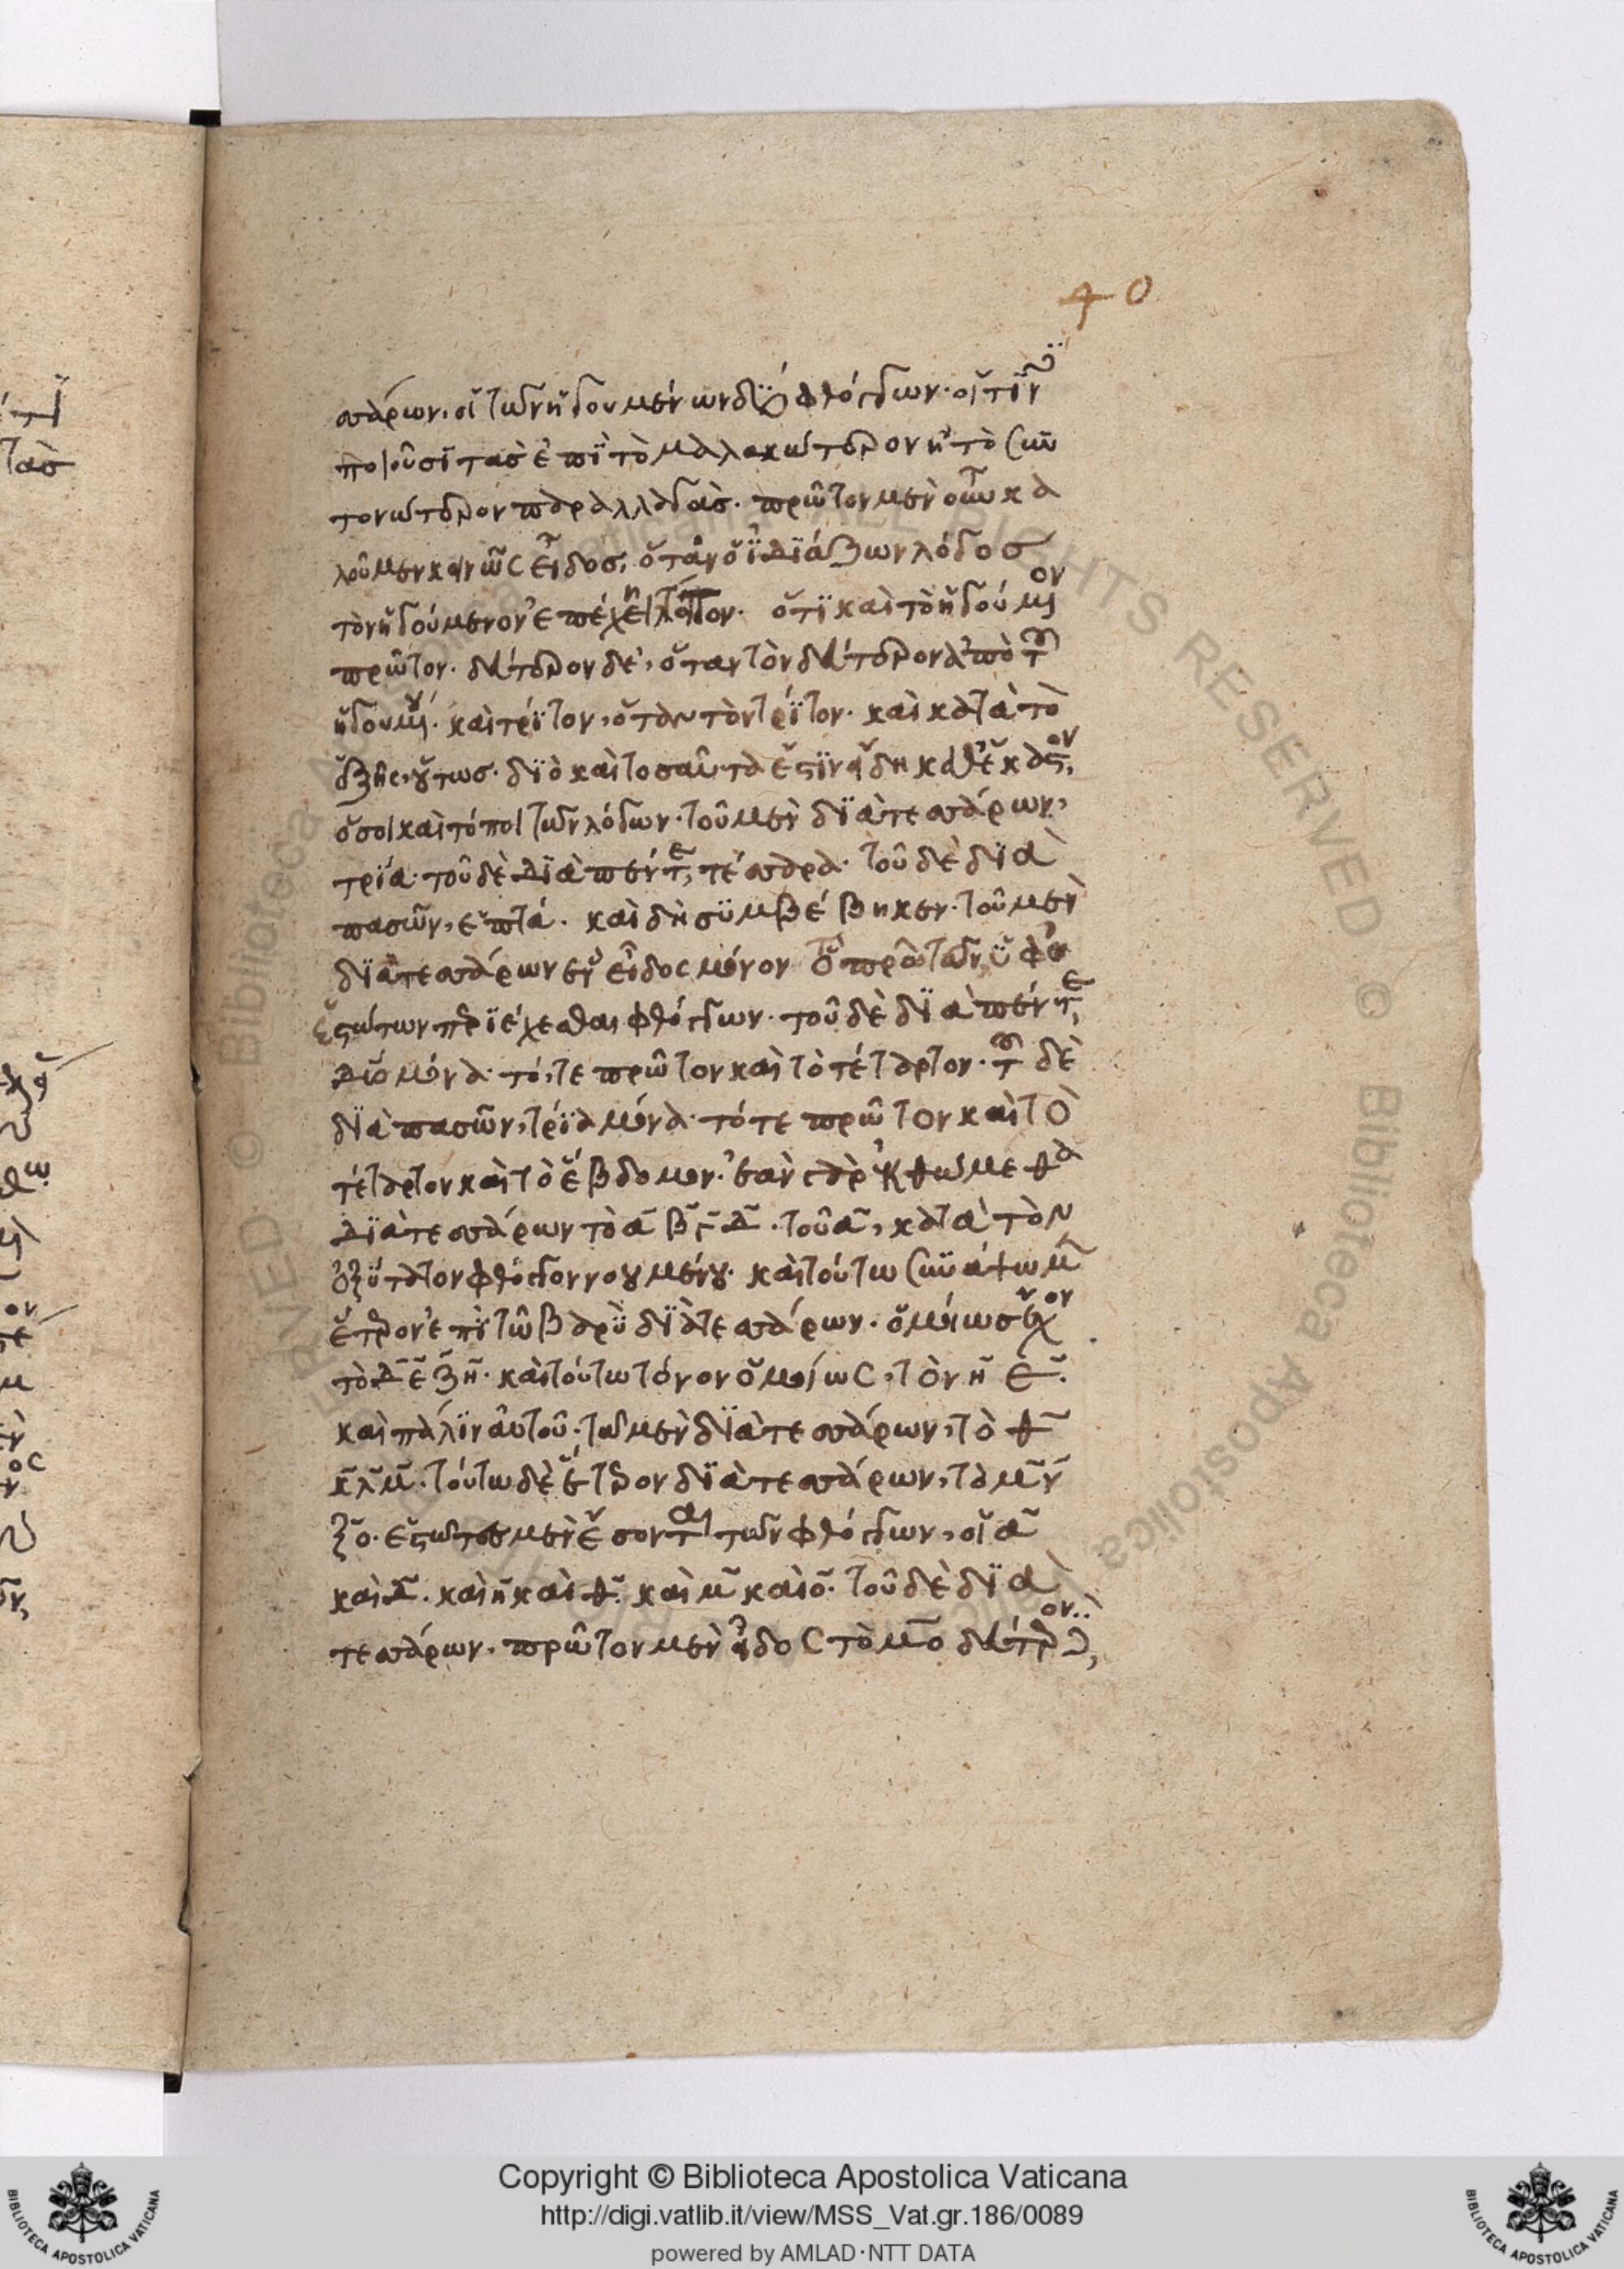 40
σάρων, οἱ τῶν ἡγουμένων δύο φθόγγων. οἵτιν
ποιοῦσι τὰς ἐπὶ τὸ μαλακώτερον ἢ τὸ συν
τονώτερον παραλλαγάς. πρῶτον μὲν οὖν κα
λοῦμεν κοινῶς εἶδος, ὅταν ὁ ἰδιάζων λόγος
τὸν ἡγούμενον ἐπέχῃ τόπον. ὅτι καὶ τὸ ἡγούμ
ον
πρῶτον. δεύτερον δὲ, ὅταν τὸν δεύτερον ἀπὸ τ
ἡγουμ. καὶ τρίτον, ὅταν τὸν τρίτον. καὶ κατὰ τὸ
ἑξῆς οὕτως. διὸ καὶ τοσαῦτα ἐστὶν εἴδη καθ' ἕκαστον,
ὅσοι καὶ τόποι τῶν λόγων. τοῦ μὲν διὰ τεσσάρων,
τρία. τοῦ δὲ διὰ πέντε, τέσσαρα. τοῦ δὲ διὰ
πασῶν, ἑπτά. καὶ δὴ συμβέβηκεν. τοῦ μὲν
διὰ τεσσάρων ἓν εἶδος μόνον τὸ πρῶτον τῶν ὑφ'
ἑστώτων περιέχεσθαι φθόγγων. τοῦ δὲ διὰ πέντε,
δύο μόνα. τό, τε πρῶτον καὶ τὸ τέταρτον. τ δὲ
διὰ πασῶν, τρία μόνα. τό τε πρῶτον καὶ τὸ
τέταρτον καὶ τὸ ἕβδομον. ἐὰν γὰρ ἐκθώμεθα
διὰ τεσσάρων τὸ α β γ δ. τοῦ α, κατὰ τὸν
ὀξύτατον φθόγγον νοουμένου. καὶ τούτω συνάψωμ
ἕτερον ἐπὶ τῶ βαρὺ διὰ τεσσάρων. ὁμοίως ἔχον
τὸ δ ε ζ η. καὶ τούτω τόνον ὁμοίως, τὸν η θ.
καὶ πάλιν αὐτοῦ. τῶ μὲν διὰ τεσσάρων, τὸ θ
κ λ μ. τούτω δὲ ἕτερον διὰ τεσσάρων, τὸ μ ν
ξ ο. ἑστῶτες μὲν ἔσονται τῶν φθόγγων, οἱ α
καὶ δ. καὶ η καὶ θ. καὶ μ καὶ ο. τοῦ δὲ διὰ
τεσσάρων. πρῶτον μὲν εἶδος τὸ μ ο δεύτερον
Copyright © Biblioteca Apostolica Vaticana
http://digi.vatlib.it/view/MSS_Vat.gr.186/0089
powered by AMLAD·NTT DATA